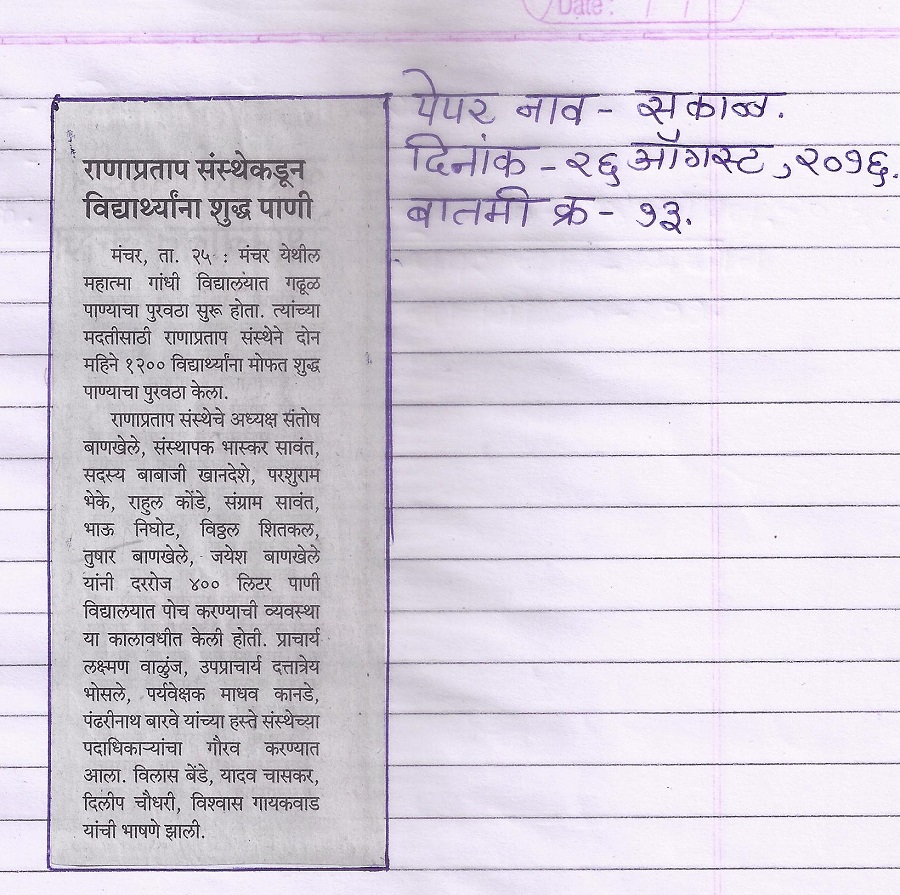 Date : / /
पेपर नाव - सकाळ.
दिनांक - २६ ऑगस्ट, २०१६.
बातमी क्र - १३.
राणाप्रताप संस्थेकडून
विद्यार्थ्यांना शुद्ध पाणी
मंचर, ता. २५ : मंचर येथील
महात्मा गांधी विद्यालयात गढूळ
पाण्याचा पुरवठा सुरू होता. त्यांच्या
मदतीसाठी राणाप्रताप संस्थेने दोन
महिने १२०० विद्यार्थ्यांना मोफत शुद्ध
पाण्याचा पुरवठा केला.
राणाप्रताप संस्थेचे अध्यक्ष संतोष
बाणखेले, संस्थापक भास्कर सावंत,
सदस्य बाबाजी खानदेशे, परशुराम
भेके, राहुल कोंडे, संग्राम सावंत,
भाऊ निघोट, विठ्ठल शितकल,
तुषार बाणखेले, जयेश बाणखेले
यांनी दररोज ४०० लिटर पाणी
विद्यालयात पोच करण्याची व्यवस्था
या कालावधीत केली होती. प्राचार्य
लक्ष्मण वाळुंज, उपप्राचार्य दत्तात्रेय
भोसले, पर्यवेक्षक माधव कानडे,
पंढरीनाथ बारवे यांच्या हस्ते संस्थेच्या
पदाधिकाऱ्यांचा गौरव करण्यात
आला. विलास बेंडे, यादव चासकर,
दिलीप चौधरी, विश्वास गायकवाड
यांची भाषणे झाली.